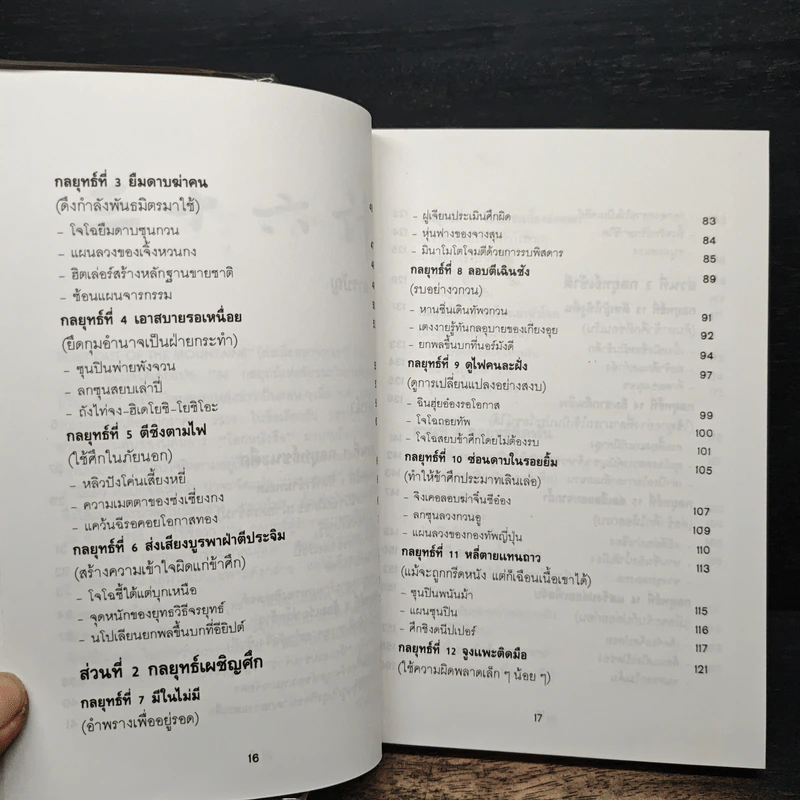 กลยุทธ์ที่ 3 ยืมดาบฆ่าคน
(ดึงกำลังพันธมิตรมาใช้)
- โจโฉยืมดาบซุนกวน
- แผนลวงของเจิ้งหวนกง
- ฮิตเล่อร์สร้างหลักฐานขายชาติ
- ซ้อนแผนจารกรรม
กลยุทธ์ที่ 4 เอาสบายรอเหนื่อย
(ยึดกุมอำนาจเป็นฝ่ายกระทำ)
- ซุนปินพ่ายพังจวน
- ลกซุนสยบเล่าปี่
- ถังไท่จง-ฮิเดโยชิ-โยชิโอะ
กลยุทธ์ที่ 5 ตีชิงตามไฟ
(ใช้ศึกในภัยนอก)
- หลิวปังโค่นเสี้ยงหยี่
- ความเมตตาของซ่งเซี่ยงกง
- แคว้นฉีรอคอยโอกาสทอง
กลยุทธ์ที่ 6 ส่งเสียงบูรพาฝ่าตีประจิม
(สร้างความเข้าใจผิดแก่ข้าศึก)
- โจโฉชี้ใต้แต่บุกเหนือ
- จุดหนักของยุทธวิธีจรยุทธ์
- นโปเลียนยกพลขึ้นบกที่อียิปต์
ส่วนที่ 2 กลยุทธ์เผชิญศึก
กลยุทธ์ที่ 7 มีในไม่มี
(อำพรางเพื่ออยู่รอด)
16
- ฝูเจียนประเมินศึกผิด 83
- หุ่นฟางของจางสุน 84
- มินาโมโตโจมตีด้วยการรบพิสดาร 85
กลยุทธ์ที่ 8 ลอบตีเฉินซัง 89
(รบอย่างวกวน)
- หานซิ่นเดินทัพวกวน 91
- เตงงายรู้ทันกลอุบายของเกียงอุย 92
- ยกพลขึ้นบกที่นอร์มังดี 94
กลยุทธ์ที่ 9 ดูไฟคนละฝั่ง 97
(ดูการเปลี่ยนแปลงอย่างสงบ)
- ฉินฮุ่ยอ๋องรอโอกาส 99
- โจโฉถอยทัพ 100
- โจโฉสยบข้าศึกโดยไม่ต้องรบ 101
กลยุทธ์ที่ 10 ซ่อนดาบในรอยยิ้ม 105
(ทำให้ข้าศึกประมาทเลินเล่อ)
- จิงเคอลอบฆ่าจิ๋นซีฮ่อง 107
- ลกซุนลวงกวนอู 109
- แผนลวงของกองทัพญี่ปุ่น 110
กลยุทธ์ที่ 11 หลี่ตายแทนถาว 113
(แม้จะถูกกรีดหนัง แต่ก็เฉือนเนื้อเขาได้)
- ซุนปินพนันม้า 115
- แผนซุนปิน 116
- ศึกชิงดนีปเปอร์ 117
กลยุทธ์ที่ 12 จูงแพะติดมือ 121
(ใช้ความผิดพลาดเล็ก ๆ น้อย ๆ)
17